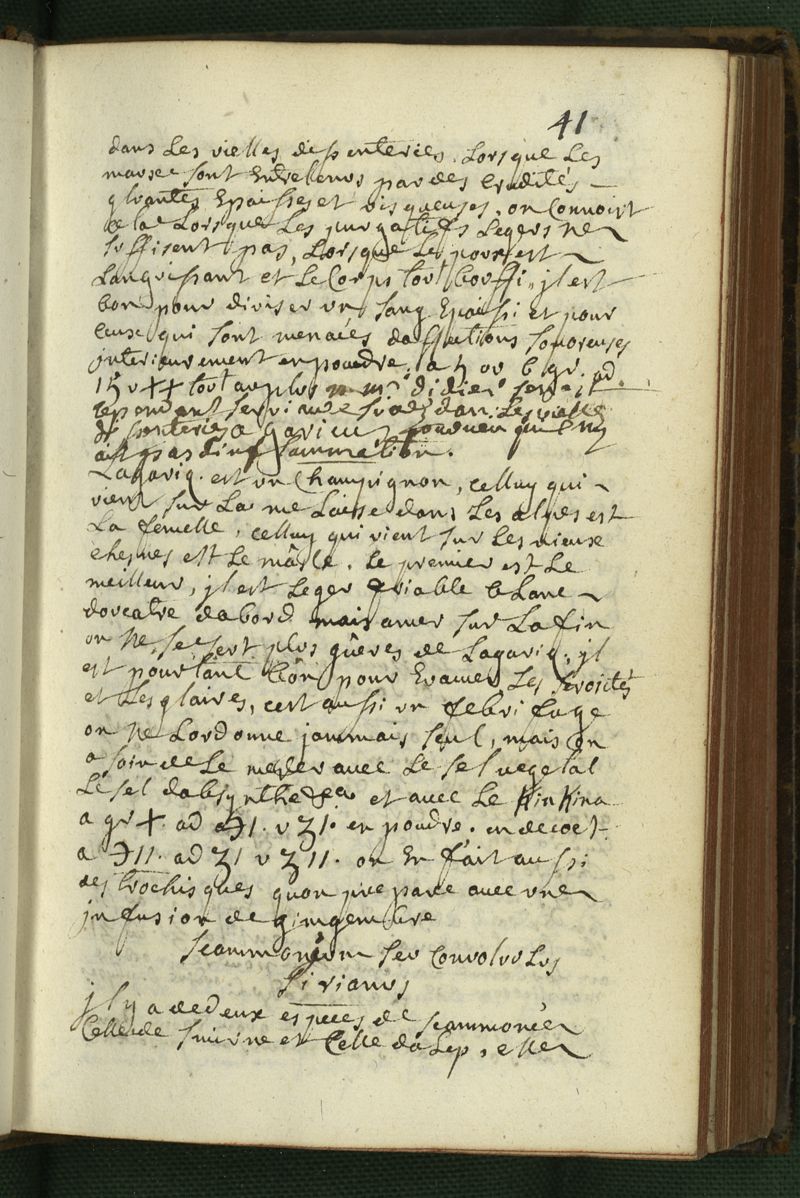 41
dans Les vielles dissenteries, Lorsque Les
maux sont Entretenus par des crudités
gluantes Epaisses et visqueuses, on Connoist
cela Lorsque Les purgatifs Legers ne
suffisent pas, Lorsque Le poux est
Languissant et Le Corps tout bouffi, jl est
bon pour diviser un sang Epaissi et pour
ceux qui sont menacés
interieurement en poudre, a ou 6 gr. ad
tout au plus mr didier
cependant servi dans Les vielles
dissenteries pourveu quil ny
ait pas dinflammation.
Lagaric est un Champignon, celluy qui
vient sur La me Laise dans Les alpes est
La femelle, celluy qui vient sur Les vieux
chesnes est Le màsle. Le premier est Le
meilleur, jl est Leger friable blanc
douceatre dabord mais amer sur La fin
on Ne se sert plus guères de Lagaric, jl
est pourtant bon pour Evacuer Les serosités
et Les glaires, cest aussi un febrifuge
on Ne Lordonne jammais seul, mais on
a soin de Le mesler avec Le sel vegetal
Le sel dabsynthe &ca et avec Le KinKina
a gr + ad a ℈1. v ʒ1. en poudre. en decoct.
a ℈11. ad ʒ1 v ʒ11. on En fait aussi
des trochisques quon prepare avec une
jnfusion de gimgembre
scammonium seu Convolvulus
sirianus
jl y a de deux especes de scammonée
Celle de smirne et Celle dalep, elle